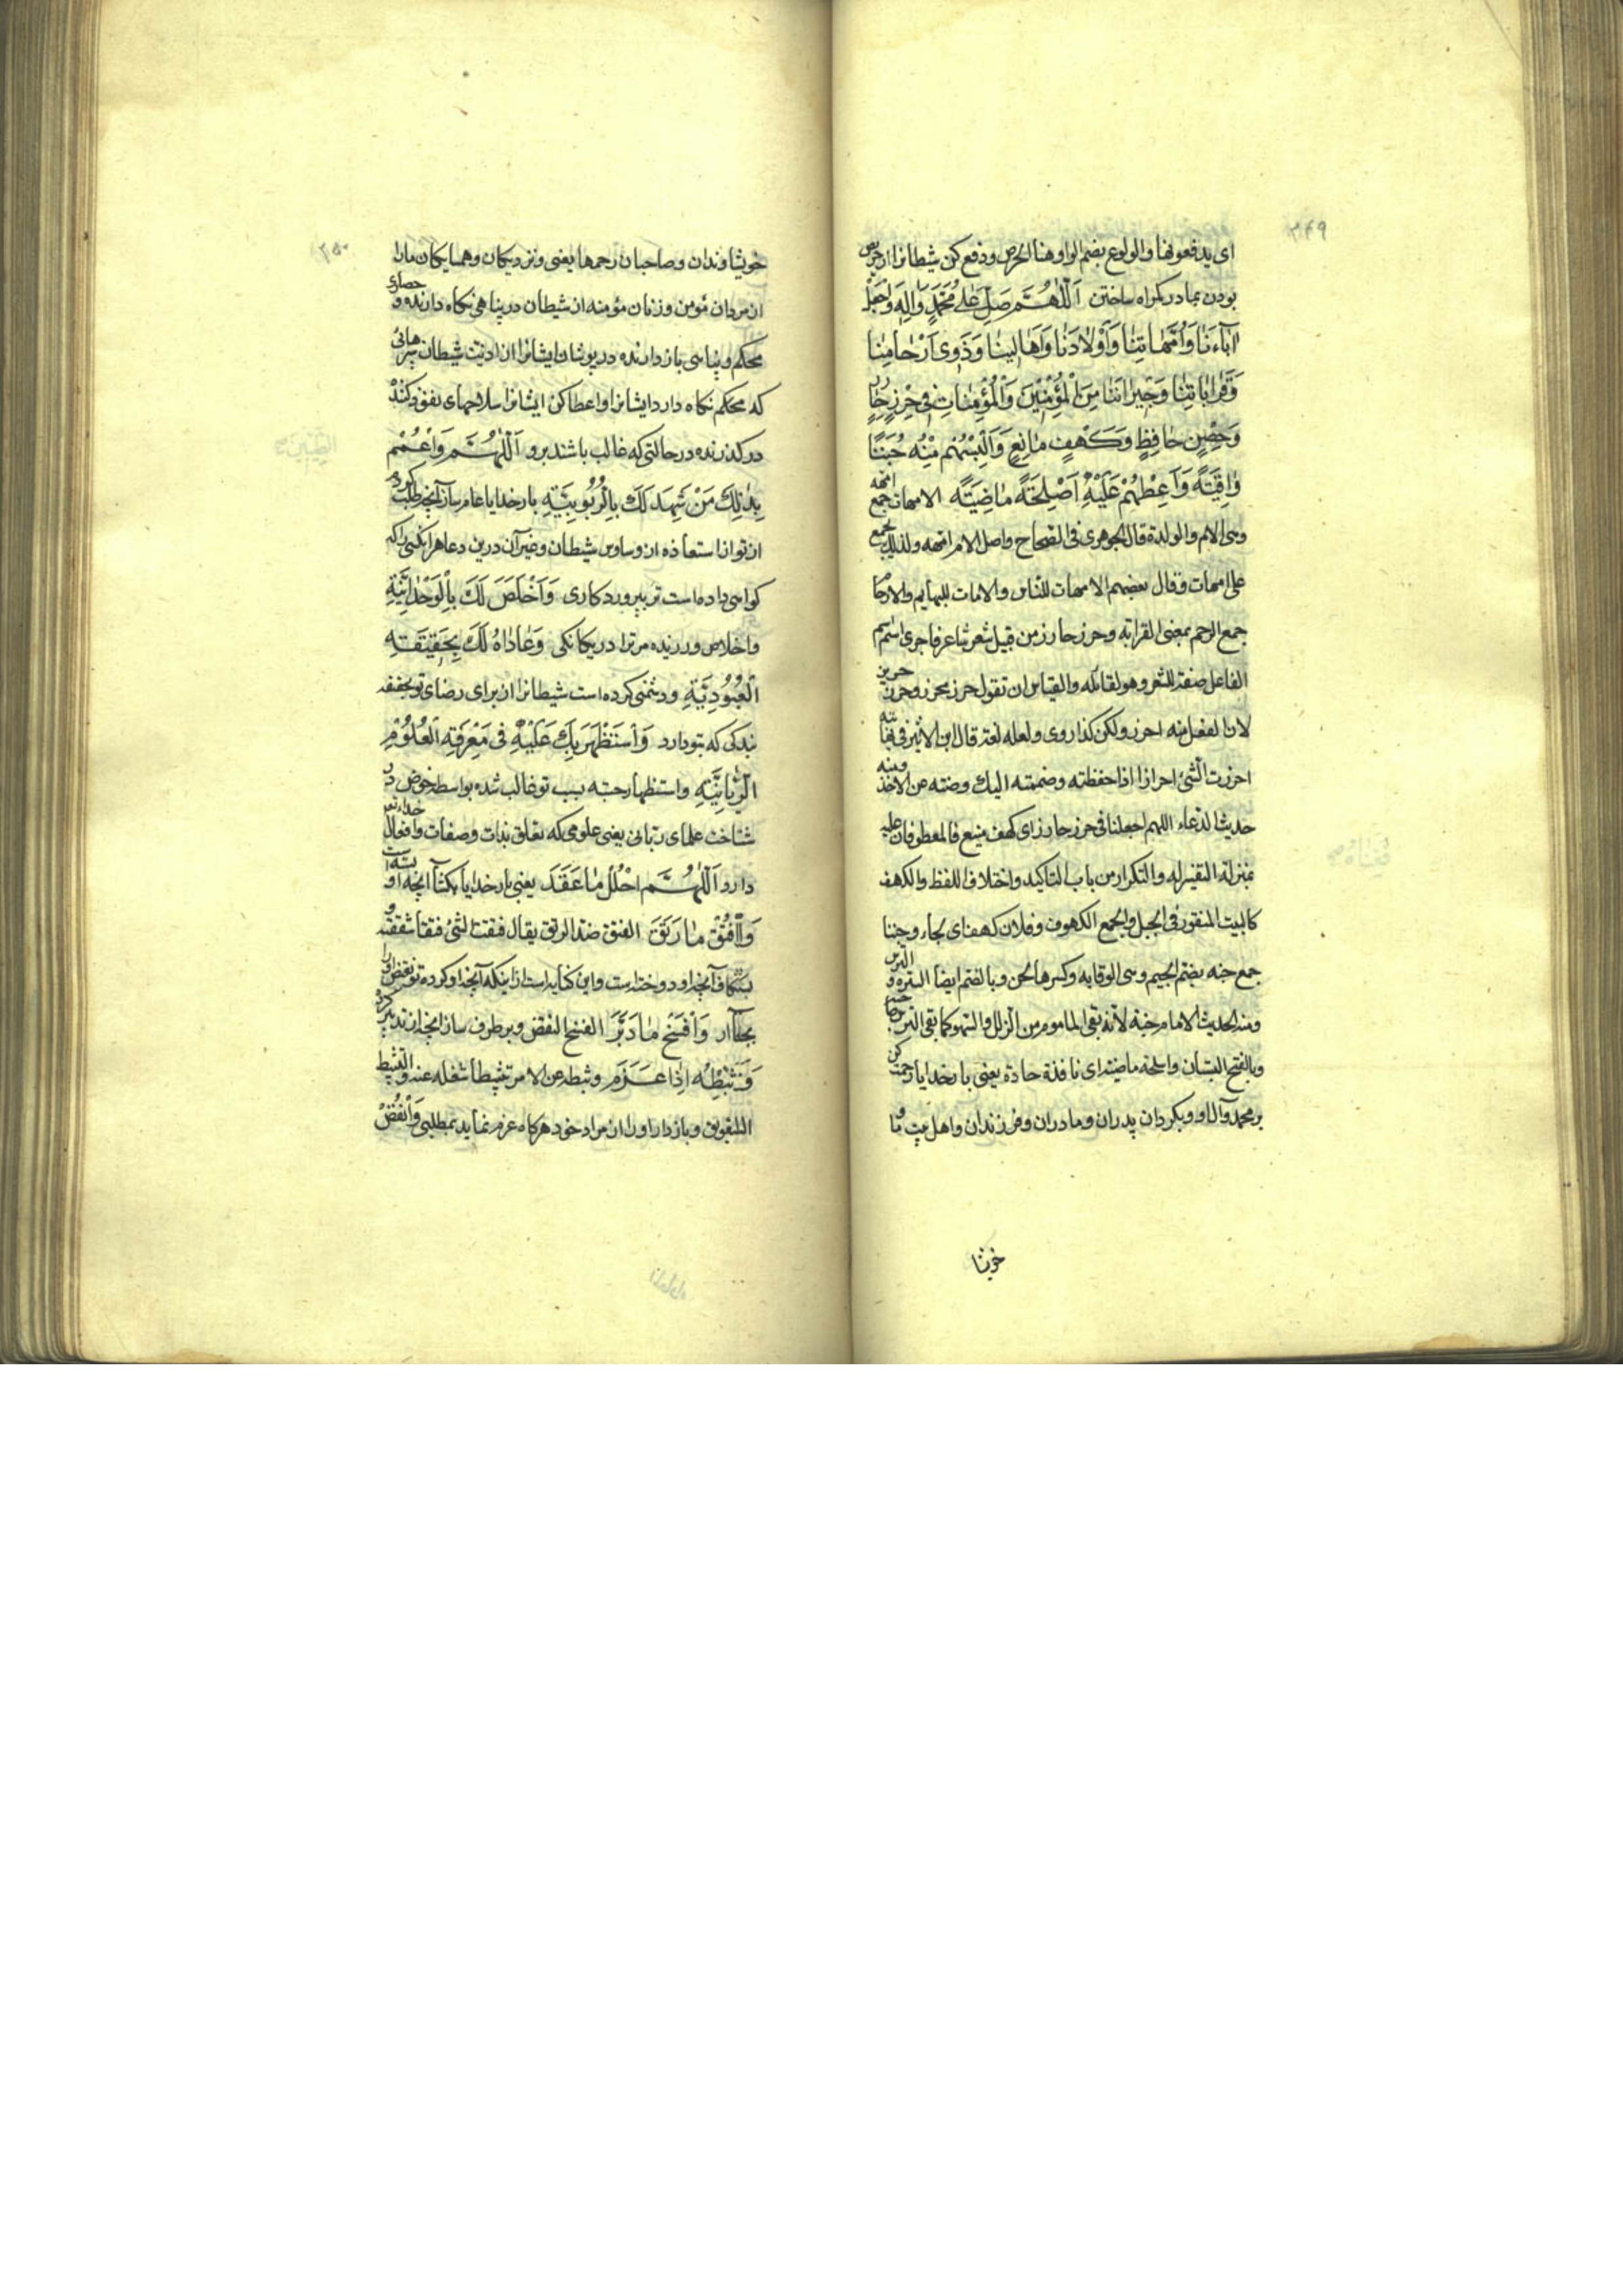 ۲۴۹
ای یدفعونها والولوع بضم الواو هنا الحرص ودفع کن شیطانرا از حریص
بودن بما در کمراه ساختن اَللّٰهُمَّ صَلِّ عَلٰی مُحَمَّدٍ وَاٰلِهِ وَاجْعَلْ
اٰبٰاءَنٰا وَاُمَّهٰاتِنٰا وَاَوْلٰادَنٰا وَاَهٰالِینٰا وَذَوِی اَرْحٰامِنٰا
وَقَرٰابٰاتِنٰا وَجِیرٰانَنٰا مِنَ الْمُؤْمِنِینَ وَالْمُؤْمِنٰاتِ فِی حِرْزٍ حٰارِزٍ
وَحِصْنٍ حٰافِظٍ وَکَهْفٍ مٰانِعٍ وَاَلْبِسْهُمْ مِنْهُ جُنَنًا
وٰاقِیَةً وَاَعْطِهِمْ عَلَیْهِ اَسْلِحَةً مٰاضِیَةً الامهات جمع امهه
وهی الام والوالدة قال الجوهری فی الصحاح واصل الام امهه ولذلک یجمع
علی امهات وقال بعضهم الامهات للناس والامات للبهایم والارحام
جمع الرحم بمعنی القرابه وحرز حارز من قبیل شعر شاعر فاجری اسم
الفاعل صفة للشعر وهو لقائله والقیاس ان تقول حرز محرز وحرز حریز
لان الفعل منه احرز ولکن کذا روی ولعله لغة قال ابن الاثیر فی نهایته
احرزت الشئ احرازا اذا حفظته وضممته الیک وصنته عن الاخذ ومنه
حدیث الدعاء اللهم اجعلنا فی حرز حارز ای کهف منیع فالمعطوفان علیه
بمنزلة التفسیر له والتکرار من باب التاکید واختلاف اللفظ والکهف
کالبیت المنقور فی الجبل والجمع الکهوف وفلان کهف ای لجاء وجننا
جمع جنه بضم الجیم وهی الوقایه وکسرها الجن وبالضم ایضا السترة و الترس
ومنه الحدیث الامام جنة لانه یقی المأموم من الزلل والسهو کما یقی الترس صاحبه
وبالفتح البستان واسلحة ماضیة ای نافذة حادة یعنی بارخدایا رحمت کن
بر محمد وآل او وبکردان پدران ومادران وفرزندان واهل بیت ما و
خویشا
۲۵۰
خویشاوندان وصاحبان رحمها یعنی ونزدیکان وهمسایکان ما را
از مردان مؤمن وزنان مؤمنه از شیطان در پناهی نکاه دارنده و حصاری
محکم وپناهی بازدارنده در پوشان ایشانرا از اذیت شیطان سپرهائی
که محکم نکاه دارد ایشانرا واعطا کن ایشانرا سلاحهای نفوذ کننده
در کذرنده در حالتی که غالب باشند برو اَللّٰهُمَّ وَاعْمُمْ
بِذٰلِکَ مَنْ شَهِدَ لَکَ بِالرُّبُوبِیَّةِ بارخدایا عام ساز آنچه طلب کردم
از تو از استعاذه از وساوس شیطان وغیر آن درین دعا هر انکسی را که
کواهی داده است تر بپروردکاری وَاَخْلَصَ لَکَ بِالْوَحْدٰانِیَّةِ
واخلاص ورزیده مر ترا در یکانکی وَعٰادٰاهُ لَکَ بِحَقِیقَةِ
الْعُبُودِیَّةِ ودشمنی کرده است شیطانرا از برای رضای تو بحقیقه
بندکی که بتو دارد وَاسْتَظْهَرَ بِکَ عَلَیْهِ فِی مَعْرِفَةِ الْعُلُومِ
الرَّبّٰانِیَّةِ واستظهار جسته بسبب تو غالب شده بواسطه خوض در
شناخت علمای ربانی یعنی علومی که تعلق بذات وصفات وافعال خدای تع
دارد اَللّٰهُمَّ احْلُلْ مٰا عَقَدَ یعنی بارخدایا بکشا آنچه او بسته است
وَافْتُقْ مٰا رَتَقَ الفتق ضد الرتق یقال فتقت الشئ فتقا شققته و
بشکاف آنچه او دوخته است واین کنایه است از اینکه آنچه او کرده تو نقض او را
بجا آر وَافْسَخْ مٰا دَبَّرَ الفسخ النقض وبرطرف ساز انچه از تدبیر کرده
وَثَبِّطْهُ اِذٰا عَزَمَ وثبطه عن الامر تثبیطا شغله عنه والتثبیط
التعویق وبازدار او را از مراد خود هرکاه عزم نماید بمطلبی وَانْقُضْ